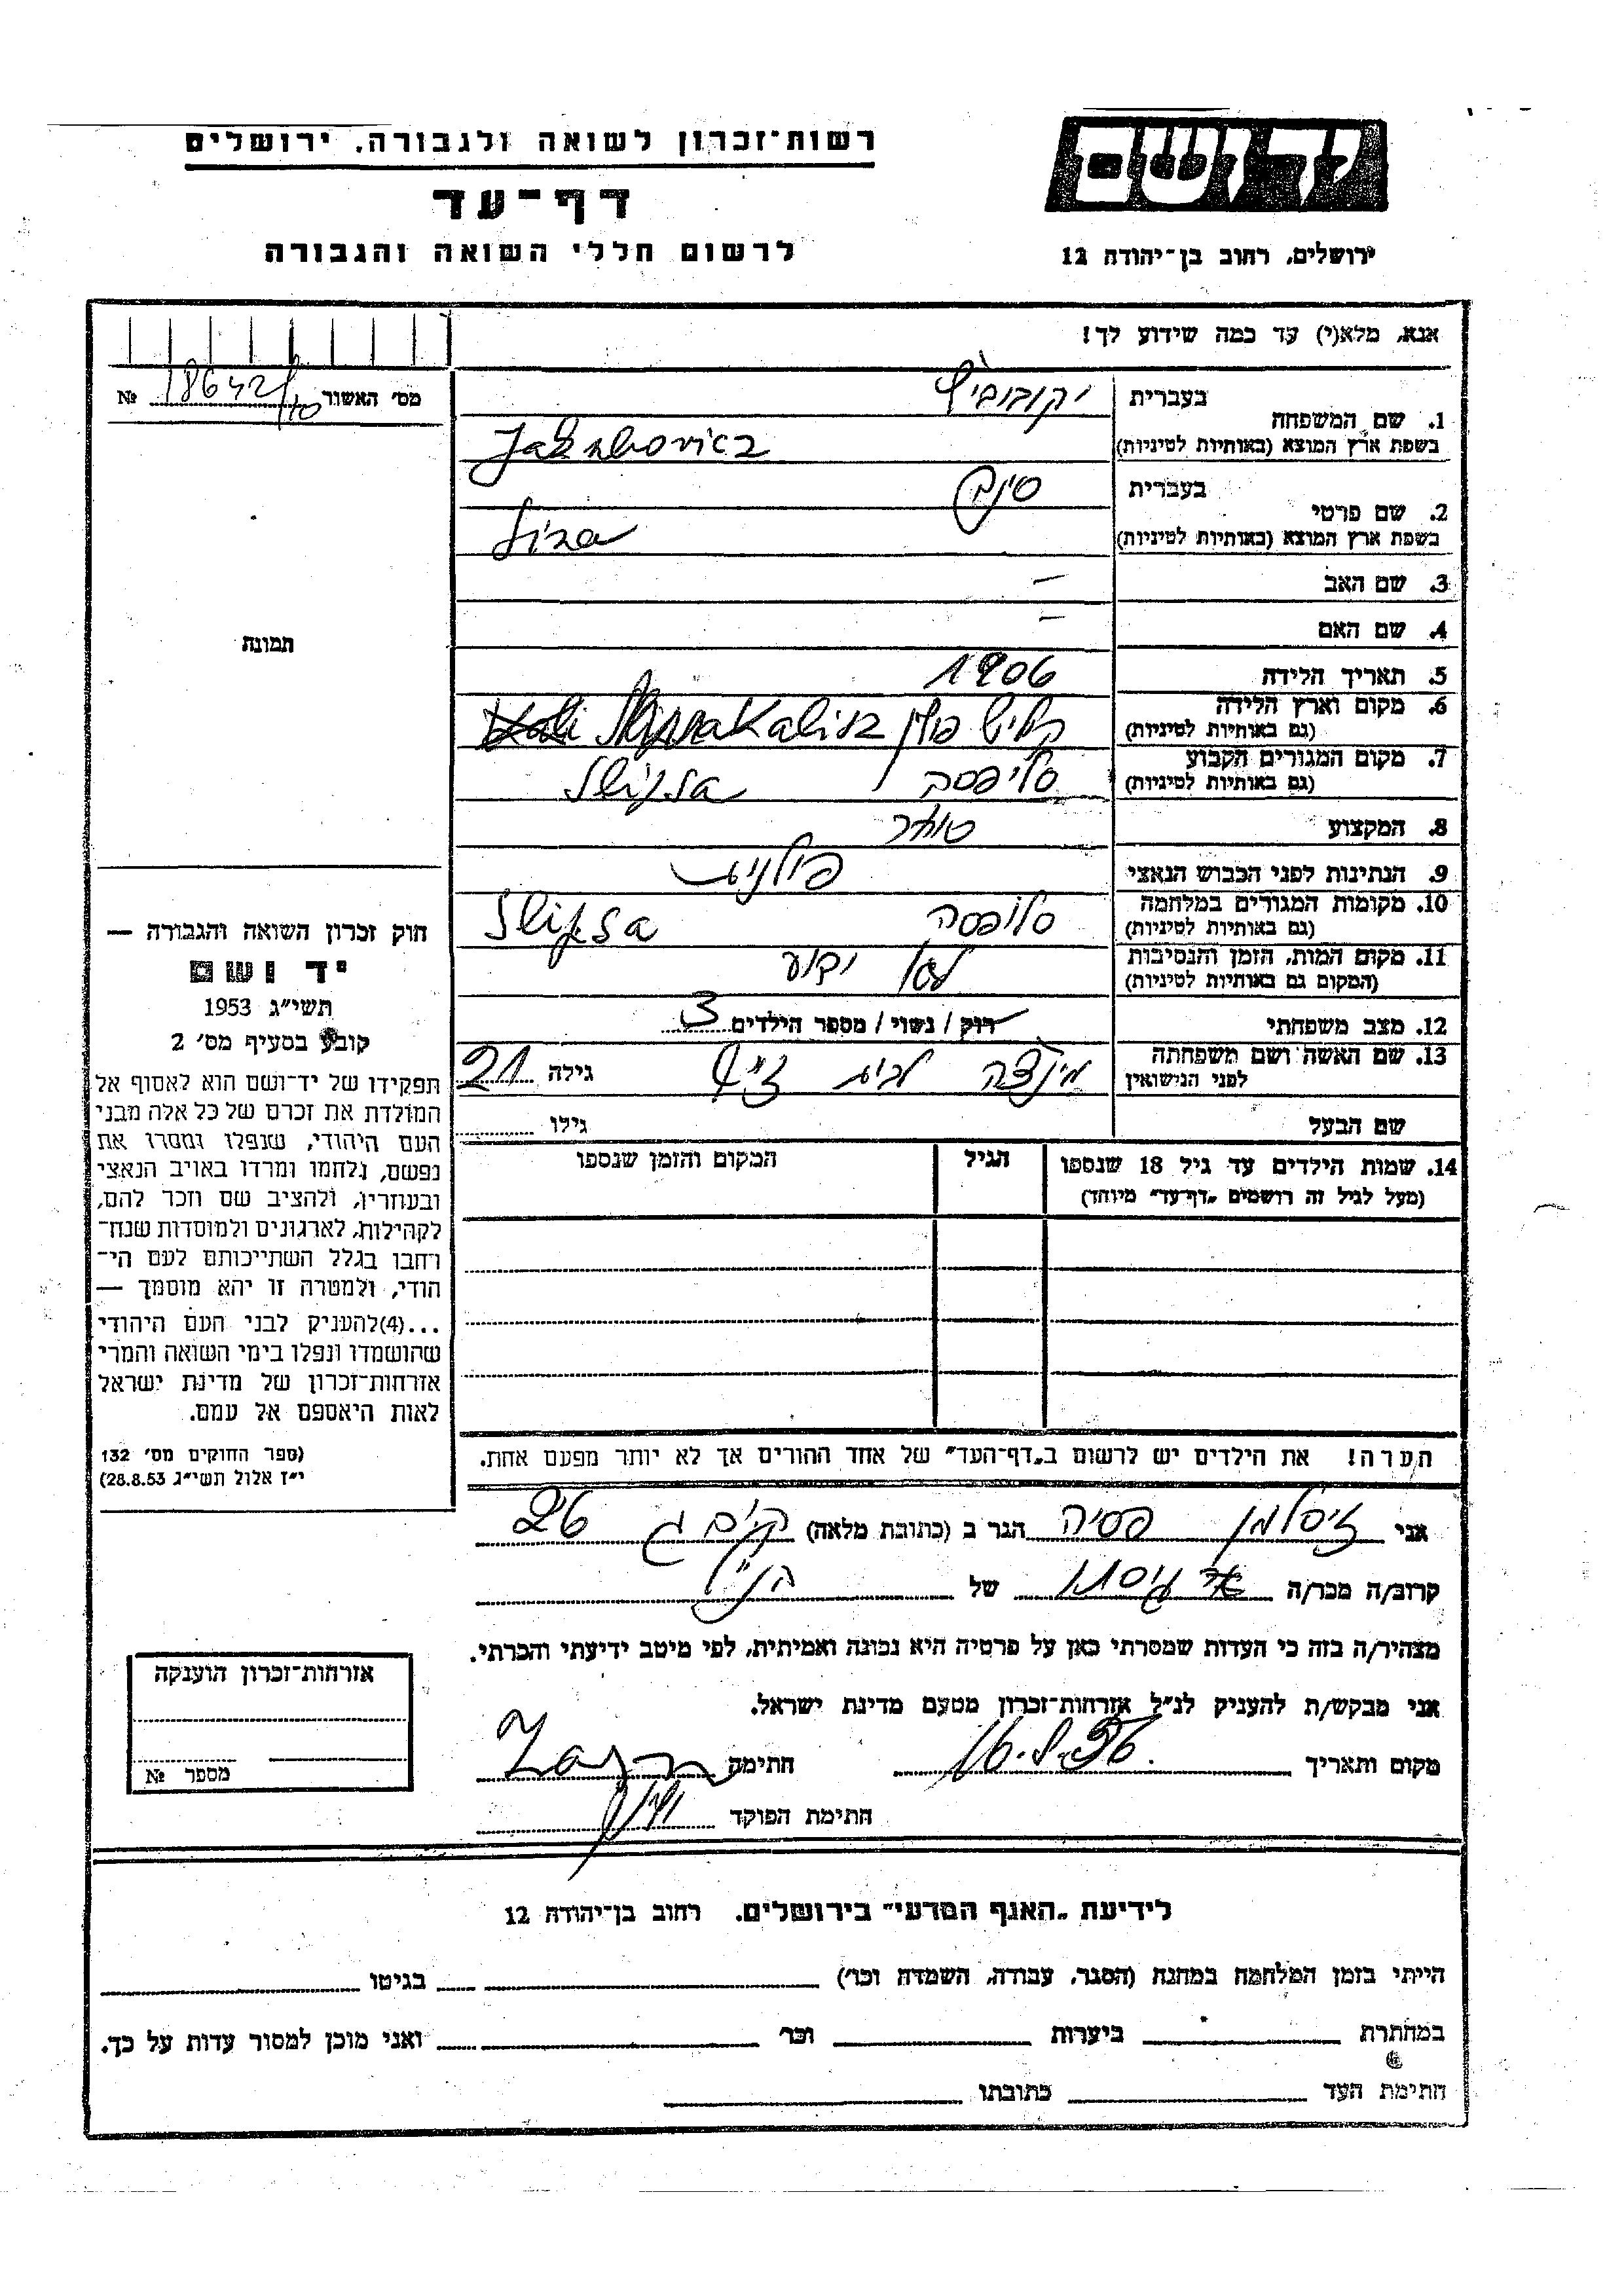 רשות־זכרון לשואה ולגבורה, ירושלים
דף־עד
לרשום חללי השואה והגבורה
יד ושם
ירושלים, רחוב בן־יהודה 12
אנא, מלא(י) עד כמה שידוע לך!
מס׳ האשור 18642/10 №
תמונה
1. שם המשפחה
בעברית יקובוביץ
בשפת ארץ המוצא (באותיות לטיניות) Jakubovicz
2. שם פרטי
בעברית
בשפת ארץ המוצא (באותיות לטיניות)
3. שם האב –
4. שם האם –
5. תאריך הלידה 1906
6. מקום וארץ הלידה
(גם באותיות לטיניות) קליש פולין Kalisz
7. מקום המגורים הקבוע
(גם באותיות לטיניות) סליפסה
8. המקצוע סוחר
9. הנתינות לפני הכבוש הנאצי פולנית
10. מקומות המגורים במלחמה
(גם באותיות לטיניות) סלופסה
11. מקום המות, הזמן והנסיבות
(המקום גם באותיות לטיניות) לא ידוע
12. מצב משפחתי רוק / נשוי / מספר הילדים 3
13. שם האשה ושם משפחתה
לפני הנישואין לבית גילה 21
שם הבעל גילו
14. שמות הילדים עד גיל 18 שנספו
(מעל לגיל זה רושמים „דף־עד״ מיוחד)
הגיל
המקום והזמן שנספו
הערה! את הילדים יש לרשום ב„דף־העד״ של אחד ההורים אך לא יותר מפעם אחת.
חוק זכרון השואה והגבורה —
יד ושם
תשי״ג 1953
קובע בסעיף מס׳ 2
תפקידו של יד־ושם הוא לאסוף אל
המולדת את זכרם של כל אלה מבני
העם היהודי, שנפלו ומסרו את
נפשם, נלחמו ומרדו באויב הנאצי
ובעוזריו, ולהציב שם וזכר להם,
לקהילות, לארגונים ולמוסדות שנח־
רחבו בגלל השתייכותם לעם הי־
הודי, ולמטרה זו יהא מוסמך —
...(4)להעניק לבני העם היהודי
שהושמדו ונפלו בימי השואה והמרי
אזרחות־זכרון של מדינת ישראל
לאות היאספם אל עמם.
(ספר החוקים מס׳ 132
י״ז אלול תשי״ג 28.8.53)
אני זיסלמן פסיה הגר ב (כתובת מלאה) 26
קרוב/ה מכר/ה גיסתו של הנ״ל
מצהיר/ה בזה כי העדות שמסרתי כאן על פרטיה היא נכונה ואמיתית, לפי מיטב ידיעתי והכרתי.
אני מבקש/ת להעניק לנ״ל אזרחות־זכרון מטעם מדינת ישראל.
מקום ותאריך חתימה
חתימת הפוקד
אזרחות־זכרון הוענקה
מספר №
לידיעת „האגף המדעי״ בירושלים. רחוב בן־יהודה 12
הייתי בזמן המלחמה במחנה (הסגר, עבודה, השמדה וכו׳) בגיטו
במחתרת ביערות וכו׳ ואני מוכן למסור עדות על כך.
חתימת העד כתובתו